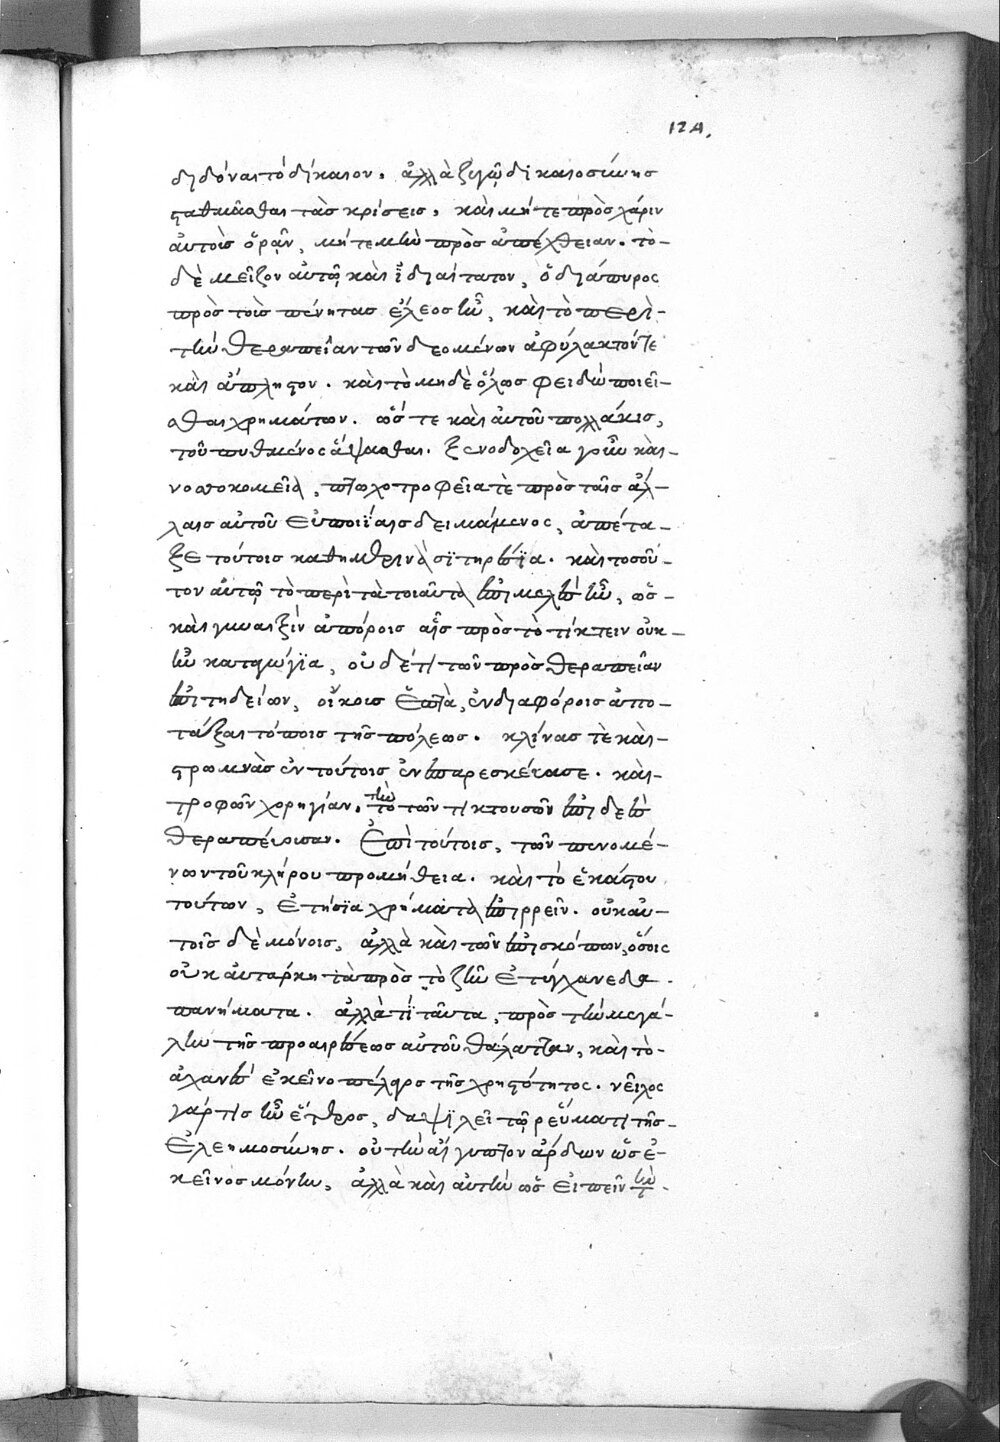 124.
διδόναι τὸ δίκαιον. ἀλλὰ ζυγῶ δικαιοσύνης
σταθμᾶσθαι τὰσ κρίσεισ, καὶ μήτε πρὸσ χάριν
αὐτοῖσ ὁρᾷν, μήτε μὴν πρὸσ ἀπέχθειαν. τὸ-
δὲ μεῖζον αὐτῶ καὶ ἰδιαίτατον, ὁ διάπυρος
πρὸσ τοὺσ πένητασ ἔλεοσ ἦν, καὶ τὸ περὶ-
τὴν θεραπεῖαν τῶν δεομένων ἀφύλακτόν τε
καὶ ἄπληστον. καὶ τὸ μηδὲ ὅλωσ φειδὼ ποιεῖ-
σθαι χρημάτων. ὥστε καὶ αὐτοῦ πολλάκισ,
τοῦ πυθμένος ἅψασθαι. ξενοδοχεῖα γοῦν καὶ-
νοσοκομεῖα, πτωχοτροφεῖα τὲ πρὸσ ταῖσ ἄλ-
λαισ αὐτοῦ εὐποιΐαισ δειμάμενος, ἀπέτα-
ξε τούτοισ καθημερινὰ σϊτηρέσϊα. καὶ τοσοῦ-
τον αὐτῶ τὸ περὶ τὰ τοιαῦτα ἐπιμελὲσ ἦν, ὡσ-
καὶ γυναιξὶν ἀπόροισ αἷσ πρὸσ τὸ τίκτειν οὐκ-
ἦν καταγώγϊα, οὐδέ τι τῶν πρὸσ θεραπεῖαν
ἐπιτηδείων, οἴκοισ ἑπτὰ, ἐν διαφόροισ ἀπο-
τάξαι τόποισ τῆσ πόλεωσ. κλίνασ τὲ καὶ-
στρωμνὰσ ἐν τούτοισ ἐμπαρεσκέυασε. καὶ-
τροφῶν χορηγίαν. τὴν τὸ τῶν τικτουσῶν ἐπιδεὲσ
θεραπέυουσαν. Ἐπὶ τούτοισ, τῶν πενομέ-
νων τοῦ κλήρου προμήθεια. καὶ τὸ ἑκάστου
τούτων, ἐτήσϊα χρήματα ἐπιρρεῖν. οὐκ αὐ-
τοῖσ δὲ μόνοισ, ἀλλὰ καὶ τῶν ἐπισκόπων, ὅσοις
οὐκ ἀυτάρκη τὰ πρὸσ τὸ ζῆν ἐτύγχανε δα-
πανήματα. ἀλλὰ τί ταῦτα, πρὸσ τὴν μεγά-
λην τῆσ προαιρέσεωσ αὐτοῦ θάλατταν, καὶ τὸ-
ἀχανὲσ ἐκεῖνο πέλαγος τῆσ χρηστότητος. νεῖλος
γάρ τισ ἦν ἕτερος, δαψϊλεῖ τῶ ρεύματι τῆσ-
ἐλεημοσύνησ. οὐ τὴν αἴγυπτον ἄρδων ὡσ ἐ-
κεῖνοσ μόνην, ἀλλὰ καὶ αὐτὴν ὡσ εἰπεῖν τὴν.